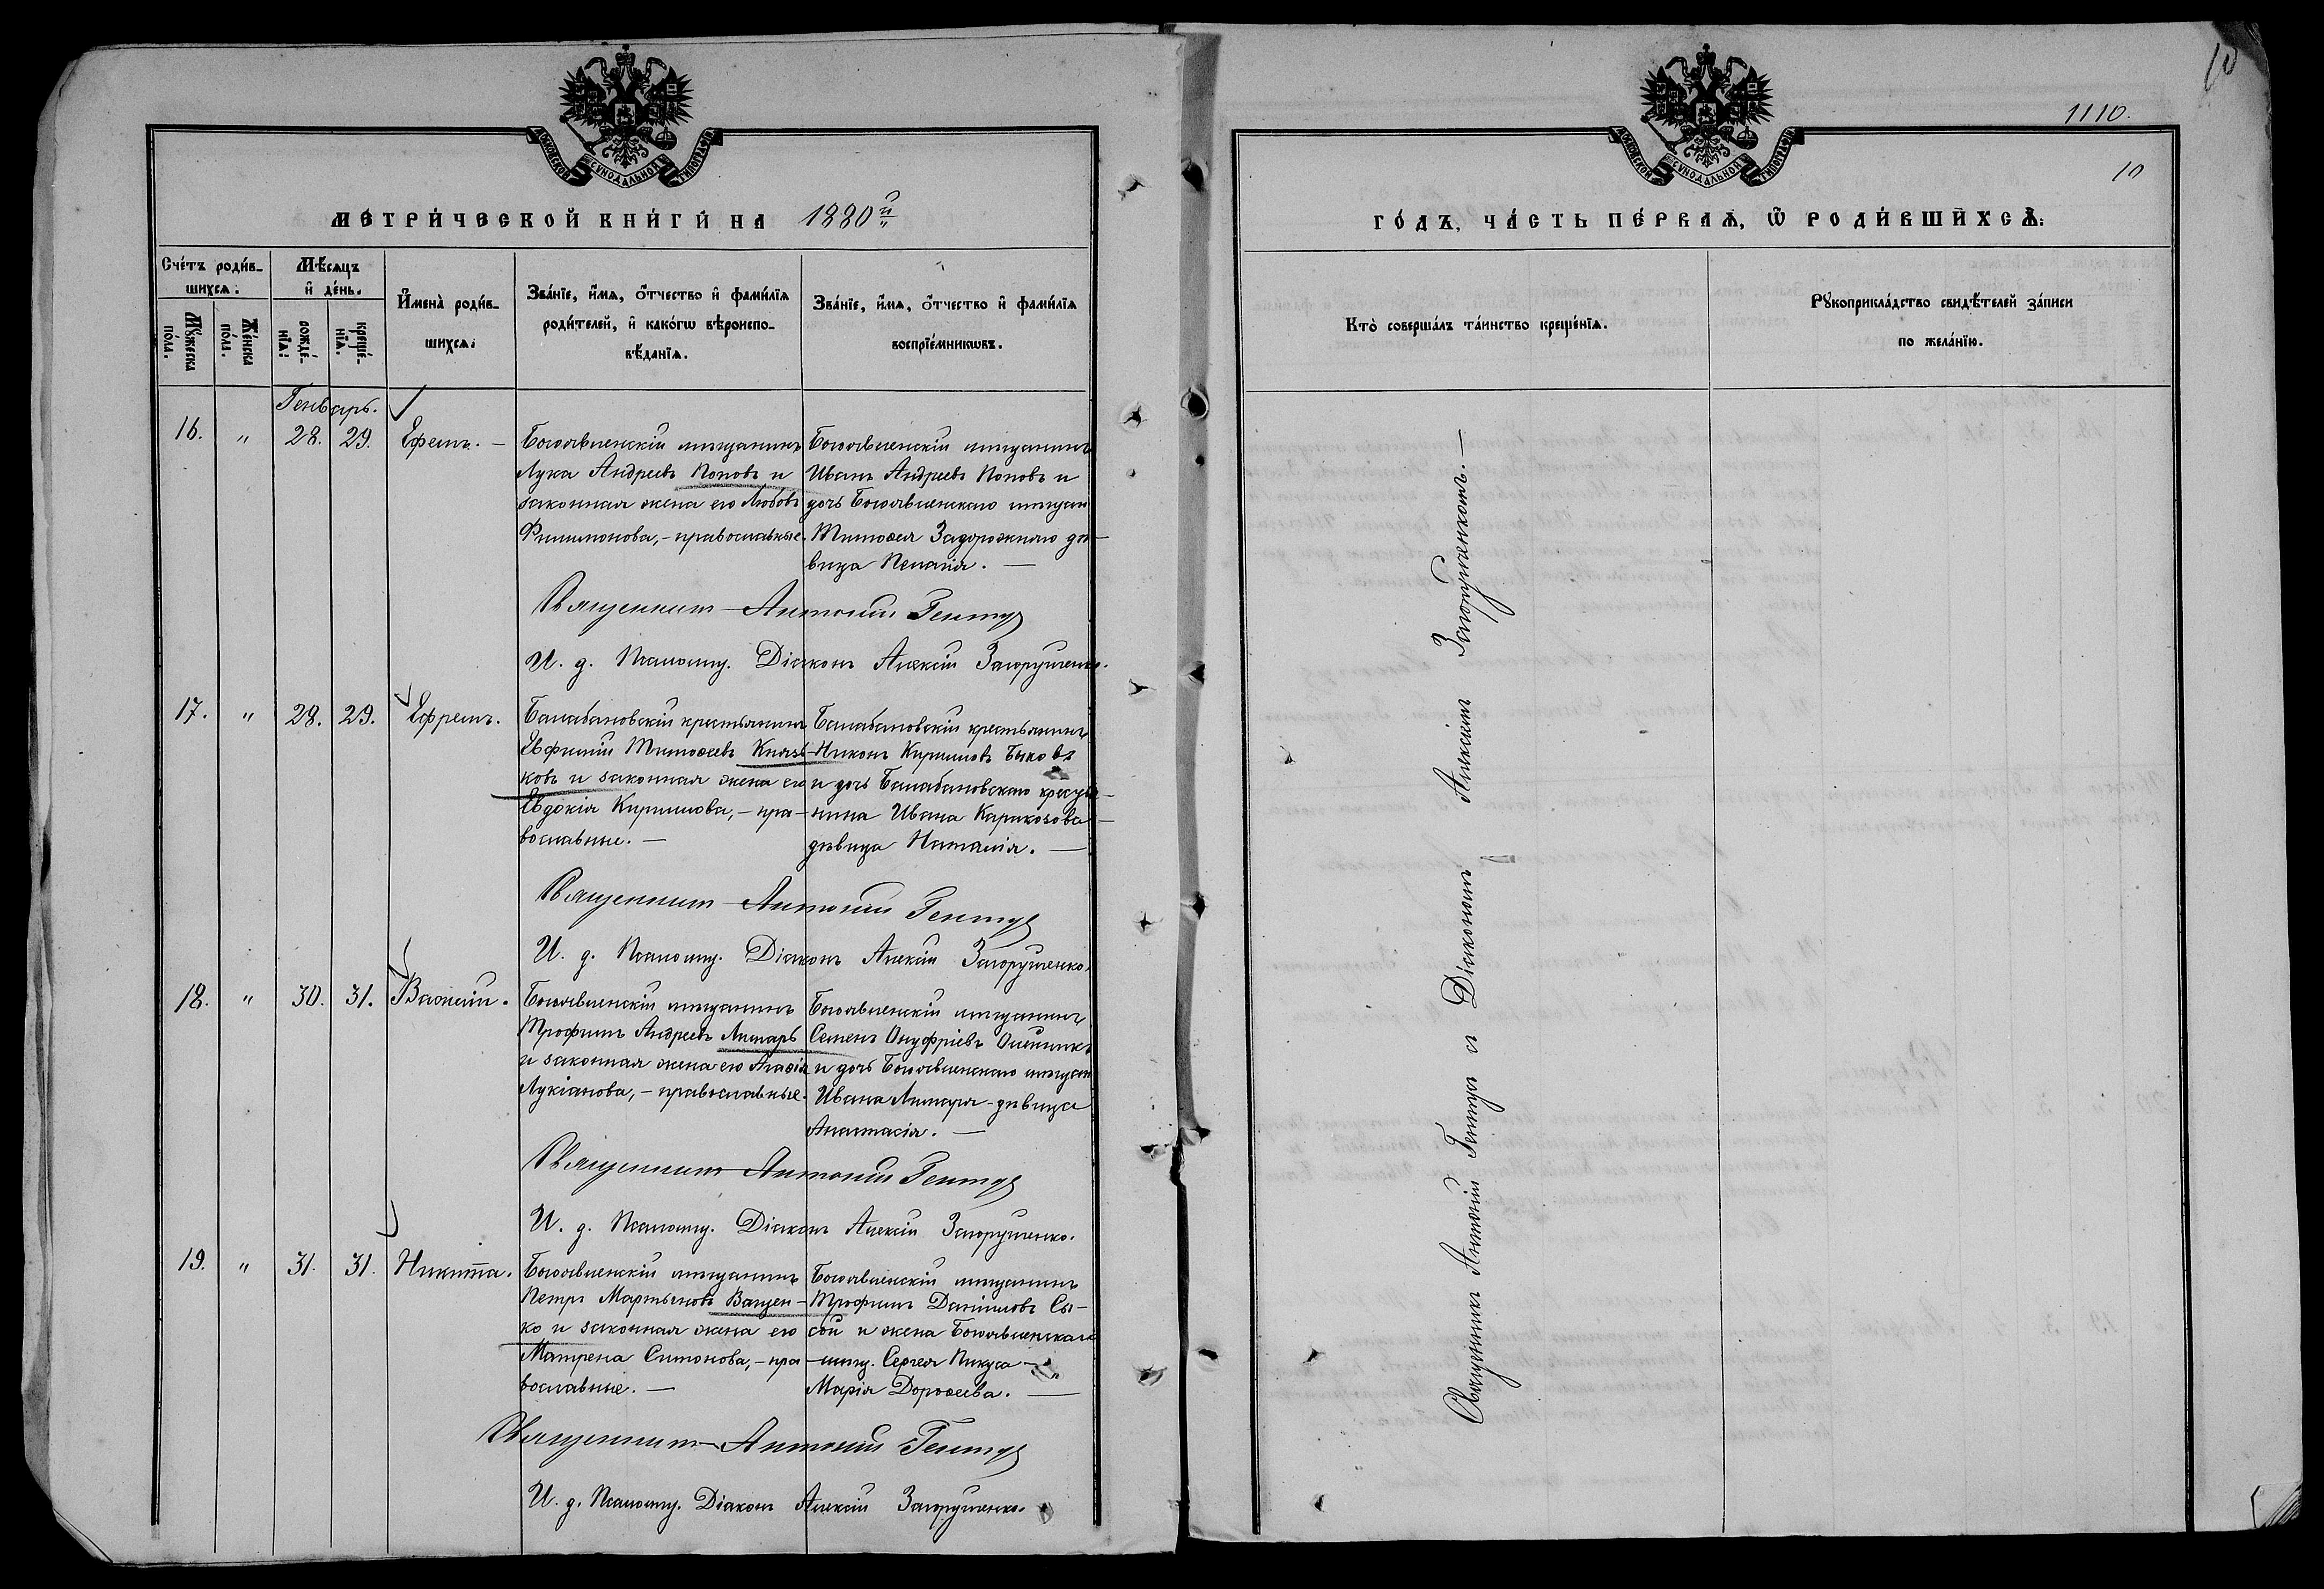 МОСКОВСКОЙ СѴНОДАЛЬНОЙ ТИПОГРАФІИ
МЕТРИ́ЧЕСКОЙ КНИ́ГИ НА 1880й
Сче́тъ роди́в-
шихсѧ:
Мѣ́сѧцъ
и҆ де́нь.
И҆мена̀ роди́в-
шихсѧ:
Зва́нїе, и҆́мѧ, ѻ҆́тчество и҆ фами́лїѧ
роди́телей, и҆ како́гѡ вѣроиспо-
вѣ́данїѧ.
Зва́нїе, и҆́мѧ, ѻ҆́тчество и҆ фами́лїѧ
воспрїе́мникѡвъ.
Мꙋ́жеска
по́ла.
Же́нска
по́ла.
рожде́-
нїѧ:
креще́-
нїѧ.
Генварь.
16. " 28. 29. Ефемъ. —
Богоявленскій мѣщанинъ
Лука Андреевъ Поповъ и
законная жена его Любовь
Филимонова, – православные.
Богоявленскій мѣщанинъ
Иванъ Андреевъ Поповъ и
дочь Богоявленскаго мѣщан
Тимоѳея Задорожнаго дѣ-
вица Пелагія. —
Священникъ Антоній Гентуз
И. д. Псаломщ. Діаконъ Алексій Загорученко.
17. " 28. 29. Ефремъ.
Балабановскій крестьянинъ
Евфимій Тимоѳеевъ Князь-
ковъ и законная жена его
Евдокія Кириллова, – пра-
вославные. —
Балабановскій крестьянинъ
Никонъ Кирилловъ Быковъ
и дочь Балабановскаго кресть-
янина Ивана Карпозова
дѣвица Наталія. —
Священникъ Антоній Гентуз
И. д. Псаломщ. Діаконъ Алексій Загорученко.
18. " 30. 31. Василій.
Богоявленскій мѣщанинъ
Трофимъ Андреевъ Лимарь
и законная жена его Агаѳія
Лукіанова, – православные.
Богоявленскій мѣщанинъ
Семенъ Онуфріевъ
и дочь Богоявленскаго мѣщан
Ивана Лимаря – дѣвица
Анастасія. —
Священникъ Антоній Гентуз
И. д. Псаломщ. Діаконъ Алексій Загорученко.
19. " 31. 31. Никита.
Богоявленскій мѣщанинъ
Петръ Мартыновъ Ващен-
ко и законная жена его
Матрена Симонова, – пра-
вославные. —
Богоявленскій мѣщанинъ
Трофимъ Даніиловъ Сы-
сой и жена Богоявленскаго
мѣщ. Сергея Пикуса –
Марія Дороѳеева. —
Священникъ Антоній Гентуз
И. д. Псаломщ. Діаконъ Алексій Загорученко.
10
1110.
10
МОСКОВСКОЙ СѴНОДАЛЬНОЙ ТИПОГРАФІИ
ГО́ДЪ, ЧА́СТЬ ПЕ́РВАѦ, Ѽ РОДИ́ВШИХСѦ:
Кто̀ соверша́лъ та́инство креще́нїѧ.
Рꙋкоприкла́дство свидѣ́телей за́писи
по жела́нїю.
Священникъ Антоній Гентуз съ Діакономъ Алексіемъ Загорученкомъ. —